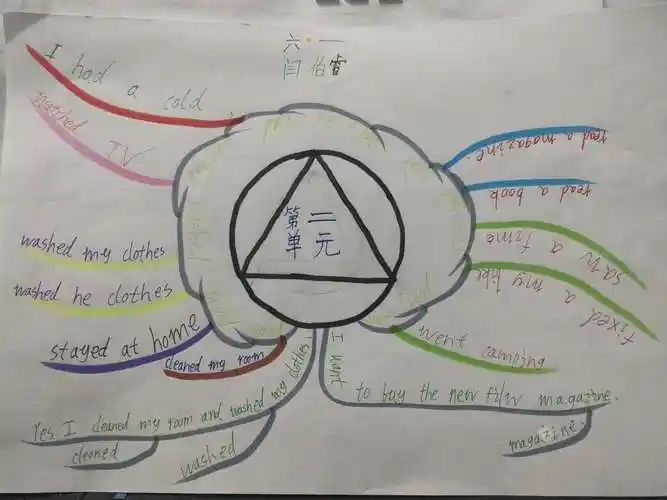 六·一
闫伯睿
I had a cold
watched
TV
washed my clothes
washed he clothes
stayed at home
cleaned my room
第二
单元
read a magazine.
read a book
saw a fime
fixed a my bike
went camping
Yes I cleaned my room and washed my clothes.
cleaned
washed
I want to buy the new film magazine.
magazine.